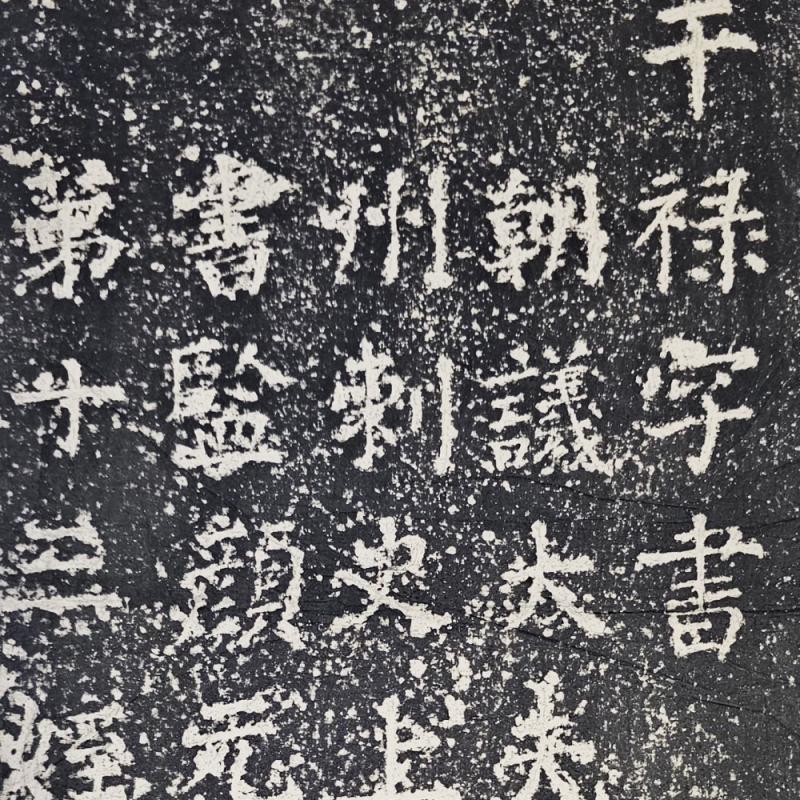 干禄字書
朝議大夫
州刺史上
書監顏元
第十三姪